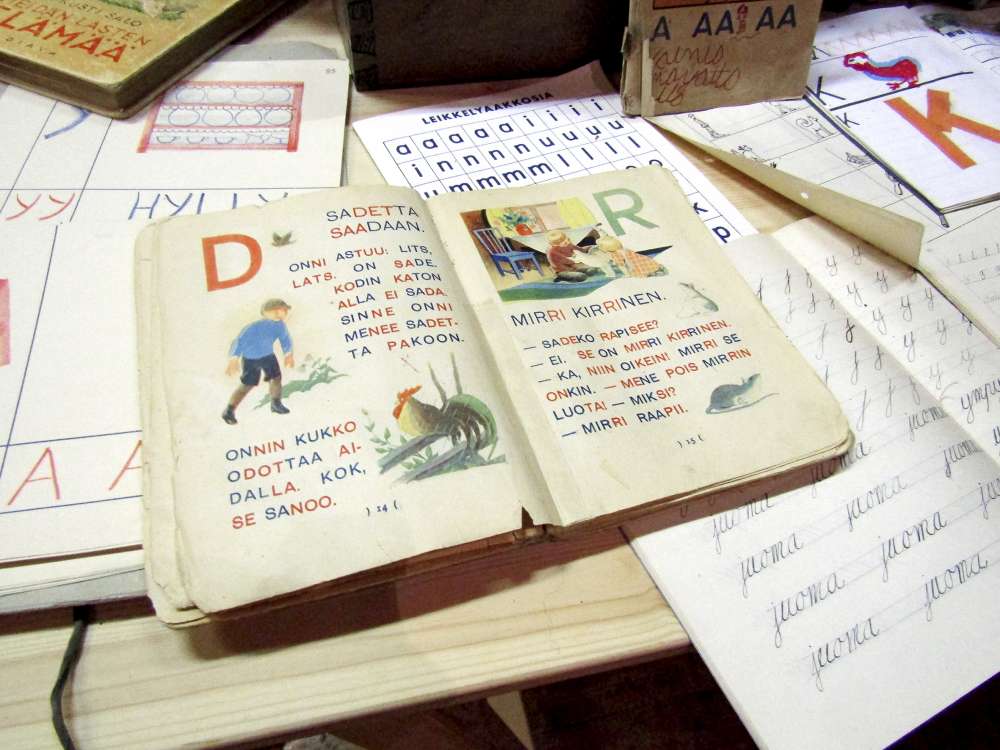 KUSTI SALO
MEIDÄN LASTEN
ELÄMÄÄ
A AA AA
LEIKKELYAAKKOSIA
a a a a a i i i i
i n n n n n u u u u
u m m m m l l l l
k
p
95
YY
A A
K
K
K
D
SADETTA
SAADAAN.
ONNI ASTUU: LITS,
LATS. ON SADE.
KODIN KATON
ALLA EI SADA.
SINNE ONNI
MENEE SADET-
TA PAKOON.
ONNIN KUKKO
ODOTTAA AI-
DALLA. KOK,
SE SANOO.
) 14 (
R
MIRRI KIRRINEN.
— SADEKO RAPISEE?
— EI. SE ON MIRRI KIRRINEN.
— KA, NIIN OIKEIN! MIRRI SE
ONKIN. — MENE POIS MIRRIN
LUOTA! — MIKSI?
— MIRRI RAAPII.
) 15 (
juoma juoma juoma
juoma juoma
juoma juoma
juoma juoma